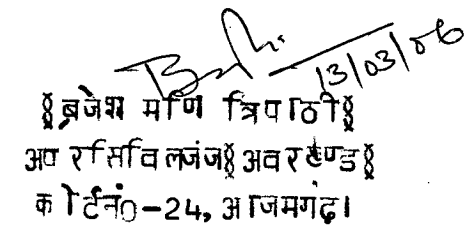 13/03/06
§ब्रजेश मणि त्रिपाठी§
अपर सिविल जज§अवर खण्ड§
कोर्ट नं0-24, आजमगढ़।